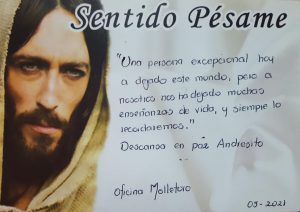 Sentido Pésame
"Una persona excepcional hoy
a dejado este mundo, pero a
nosotros nos ha dejado muchas
enseñanzas de vida, y siempre lo
recordaremos."
Descansa en paz Andresito
Oficina Molleturo
05-2021